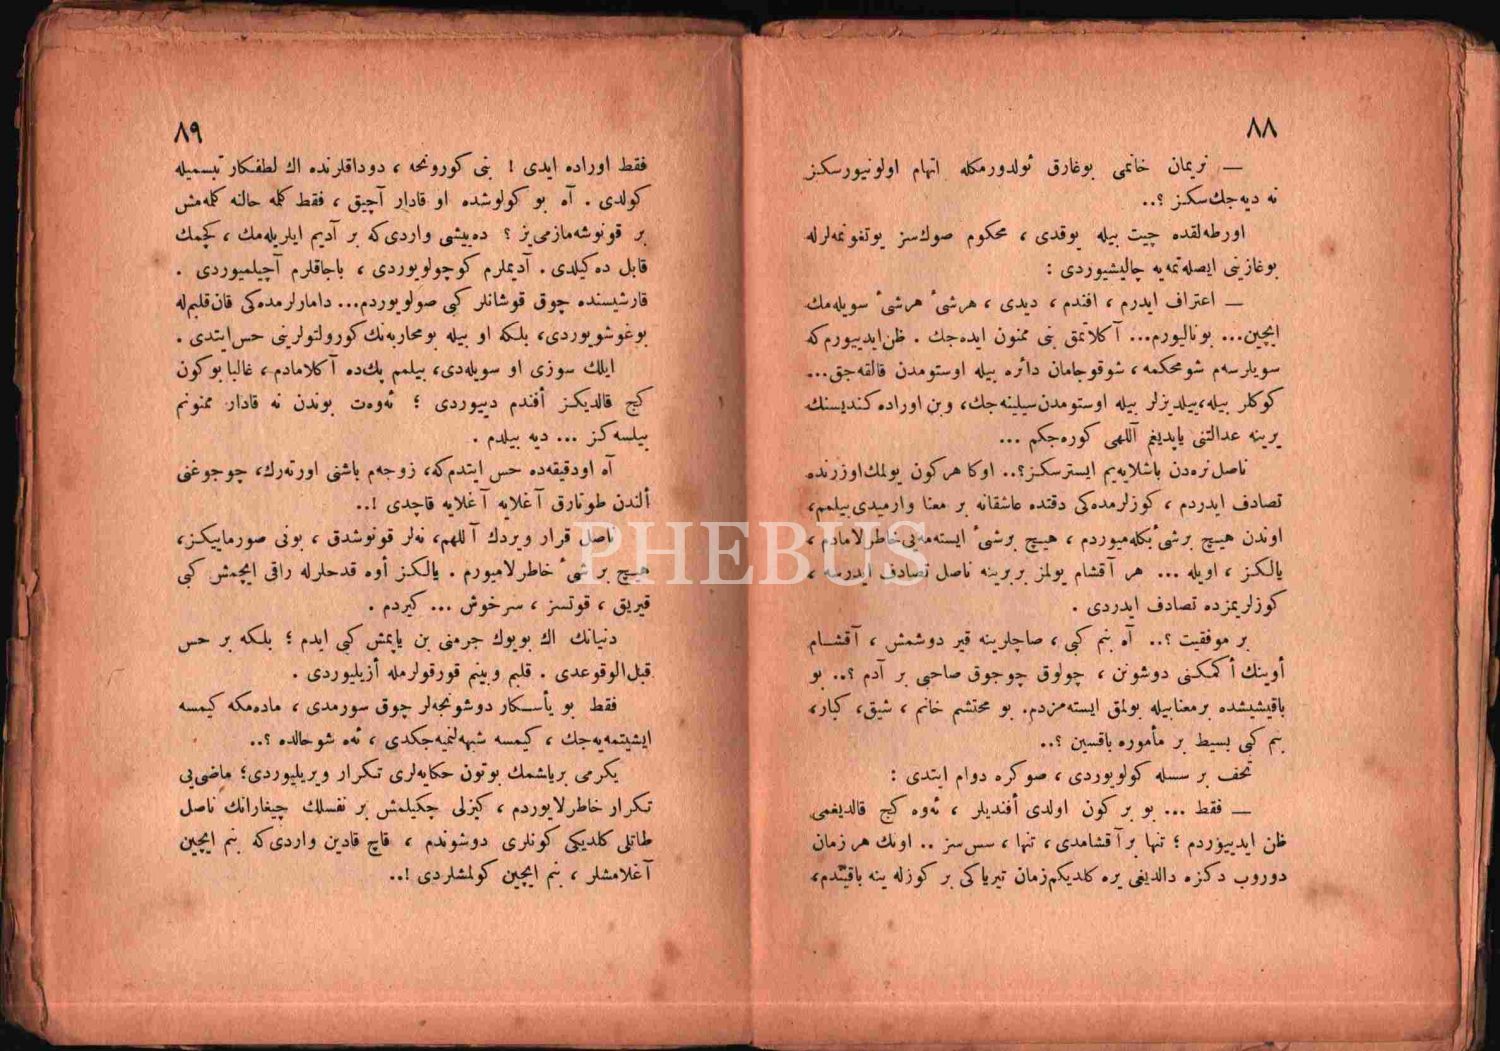 ٨٨
— نریمان خانمی بوغارق ئولدورمکله اتهام اولونیورسکز
نه دیه‌جك‌سکز ؟..
اورطه‌لقده چیت بیله یوقدی ، محکوم صوك‌سز یوتغونمه‌لرله
بوغازینی ایصلاتمه‌یه چالیشیوردی :
— اعتراف ایدرم ، افندم ، دیدی ، هرشیٔ هرشیٔ سویله‌مك
ایچین... بونالیورم... آکلاتمق بنی ممنون ایده‌جك . ظن‌ایدییورم‌که
سویلرسه‌م شومحکمه ، شوقوجامان دائره بیله اوستومدن قالقه‌جق...
کوکلر بیله، ییلدیزلر بیله اوستومدن سیلینه‌جك، وبن اوراده کندیسنك
یرینه عدالتنی یاپدیغم آللهی کوره‌جکم ...
ناصل نره‌دن باشلایه‌یم ایسترسکز؟.. اوکا هرکون یولمك اوزرنده
تصادف ایدردم ، کوزلرمده‌کی دقتده عاشقانه بر معنا وارمیدی بیلمم،
اوندن هیچ برشیٔ بکله‌میوردم ، هیچ برشیٔ ایسته‌مه‌یی خاطرلامادم ،
یالکز ، اویله ... هر آقشام یولمز بربرینه ناصل تصادف ایدرسه ،
کوزلریمزده تصادف ایدردی .
بر موفقیت ؟.. آه بنم کبی ، صاچلرینه قیر دوشمش ، آقشام
أوینك أکمکنی دوشونن ، چولوق چوجوق صاحبی بر آدم ؟.. بو
باقیشیشده برمعنا بیله بولمق ایسته‌مزدم. بو محتشم خانم ، شیق، کبار،
بنم کبی بسیط بر مأموره باقسین ؟..
تحف بر سسله کولویوردی ، صوکره دوام ایتدی :
— فقط ... بو بر کون اولدی أفندیلر ، ئه‌وه کیج قالدیغمی
ظن ایدییوردم ؛ تنها بر آقشامدی ، تنها ، سس‌سز .. اونك هر زمان
دوروب دکزه دالدیغی یره کلدیکم‌زمان تیریاکی بر کوزله ینه باقیندم،
٨٩
فقط اوراده ایدی ! بنی کورونجه ، دوداقلرنده اك لطفکار تبسمیله
کولدی . آه بو کولوشده او قادار آچیق ، فقط کله حالنه کله‌مش
بر قونوشه‌مازمی‌یز ؟ ده‌ییشی واردی‌که بر آدیم ایلریله‌مك ، کچمك
قابل ده‌کیلدی . آدیملرم کوچولویوردی ، باجاقلرم آچیلمیوردی .
قارشیسنده چوق قوشانلر کبی صولویوردم... دامارلرمده‌کی قان‌قلبم‌له
بوغوشویوردی، بلکه او بیله بومحاربه‌نك‌کورولتولرینی حس‌ایتدی .
ایلك سوزی او سویله‌دی، بیلمم پك‌ده آکلامادم، غالبا بوکون
کیج قالدیکز أفندم دییوردی ؛ ئه‌وت بوندن نه قادار ممنونم
بیلسه‌کز ... دیه بیلدم .
آه اودقیقه‌ده حس ایتدم‌که، زوجه‌م باشنی اورته‌رك، چوجوغنی
ألندن طوتارق آغلایه آغلایه قاچدی !..
ناصل قرار ویردك آللهم، نه‌لر قونوشدق ، بونی صورماییکز،
هیچ برشیٔ خاطرلامیورم . یالکز أوه قدحلرله راقی ایچمش کبی
قیریق ، قوتسز ، سرخوش ... کیردم .
دنیانك اك بویوك جرمنی بن یاپمش کبی ایدم ؛ بلکه بر حس
قبل‌الوقوعدی . قلبم وبینم قورقولرمله أزیلیوردی .
فقط بو یأسکار دوشونجه‌لر چوق سورمدی ، ماده‌مکه کیمسه
ایشیتمه‌یه‌جك ، کیمسه شبهه‌لنمیه‌جکدی ، ئه‌ه شو حالده ؟..
یکرمی بریاشمك بوتون حکایه‌لری تکرار ویریلیوردی؛ ماضی‌یی
تکرار خاطرلایوردم ، کیزلی چکیلمش بر نفسلك چیغارانك ناصل
طاتلی کلدیکی کونلری دوشوندم ، قاچ قادین واردی‌که بنم ایچین
آغلامشلر ، بنم ایچین کولمشلردی !..
PHEBUS